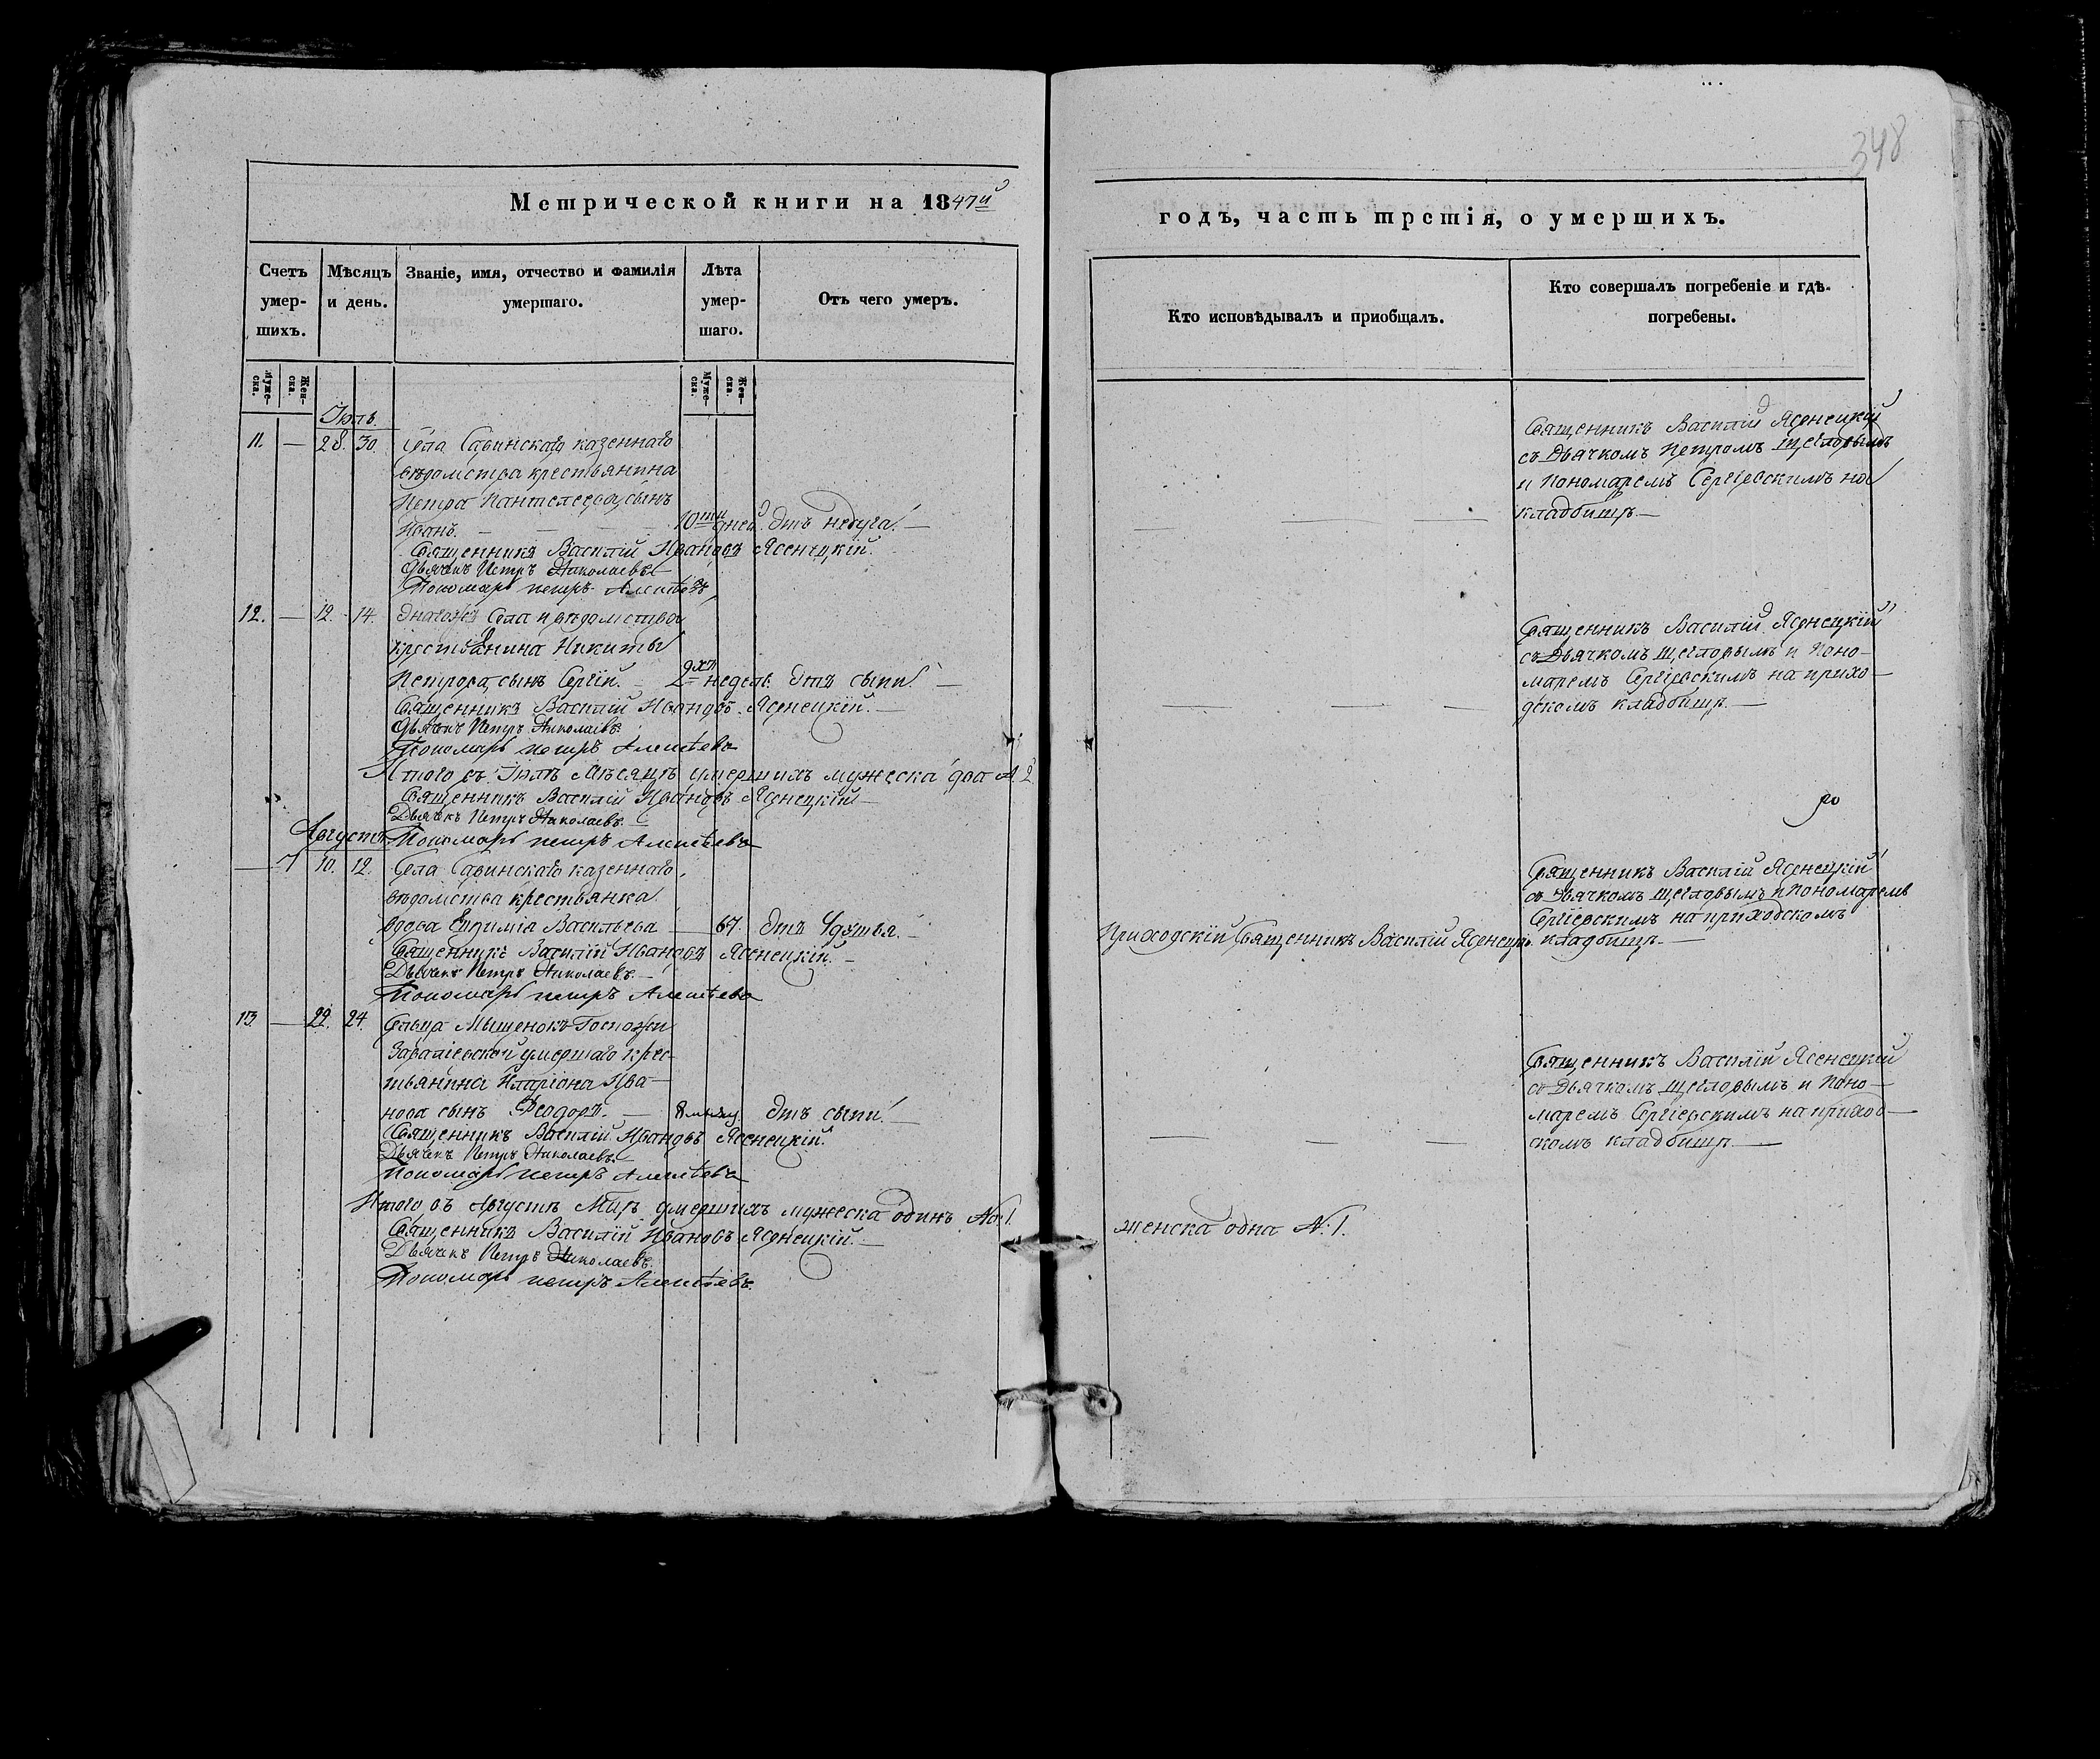 348
Метрической книги на 1847й
годъ, часть третія, о умершихъ.
Счетъ умер-шихъ.
Мѣсяцъ и день.
Званіе, имя, отчество и фамилія умершаго.
Лѣта умер-шаго.
Отъ чего умеръ.
Кто исповѣдывалъ и пріобщалъ.
Кто совершалъ погребеніе и гдѣ погребены.
Муже-ска.
Жен-ска.
Муже-ска.
Жен-ска.
Іюль.
11. — 28. 30. Села Савинскаго казеннаго
вѣдомства крестьянина
Петра Пантелеева, сынъ
Иванъ. — 10ти дней. Отъ недуга. —
Священникъ Василій Ивановъ Ясенецкій.
Дьячекъ Петръ Николаевъ
Пономарь петръ Алексѣевъ
Священникъ Василій Ясенецкій
съ Дьячкомъ Петромъ Щегловымъ
и Пономаремъ Сергіевскимъ на
кладбищѣ. —
12. — 12. 14. Онагожъ Села и вѣдомства
крестьянина Никиты
Петрова, сынъ Сергій. — 2хъ недель. Отъ сыпи. —
Священникъ Василій Ивановъ Ясенецкій. —
Дьячекъ Петръ Николаевъ.
Пономарь петръ Алексѣевъ
Священникъ Василій Ясенецкій
съ Дьячкомъ Щегловымъ и Поно-
маремъ Сергіевскимъ на прихо-
дскомъ кладбищѣ. —
Итого въ Іюлѣ Мѣсяцѣ умершихъ мужеска два №. 2.
Священникъ Василій Ивановъ Ясенецкій —
Дьячекъ Петръ Николаевъ.
Пономарь петръ Алексѣевъ
Августъ.
— 7 10. 12. Села Савинскаго казеннаго
вѣдомства крестьянка
вдова Евфимія Васильева — 67. Отъ Удушья. —
Священникъ Василій Ивановъ Ясенецкій. —
Дьячекъ Петръ Николаевъ. —
Пономарь петръ Алексѣевъ
Приходскій Священникъ Василій Ясенецк.
Священникъ Василій Ясенецкій
съ Дьячкомъ Щегловымъ и Пономаремъ
Сергіевскимъ на приходскомъ
кладбищѣ. —
13. — 22. 24. Сельца Мышенокъ Госпожи
умершаго крес-
тьянина Иларіона Ива-
нова сынъ Феодоръ. — Отъ сыпи. —
Священникъ Василій Ивановъ Ясенецкій.
Дьячекъ Петръ Николаевъ.
Пономарь петръ Алексѣевъ
Священникъ Василій Ясенецкій
съ Дьячкомъ Щегловымъ и Поно-
маремъ Сергіевскимъ на приход-
скомъ кладбищѣ. —
Итого въ Августѣ Мцѣ умершихъ мужеска одинъ №. 1.
женска одна №. 1.
Священникъ Василій Ивановъ Ясенецкій. —
Дьячекъ Петръ Николаевъ.
Пономарь петръ Алексѣевъ.